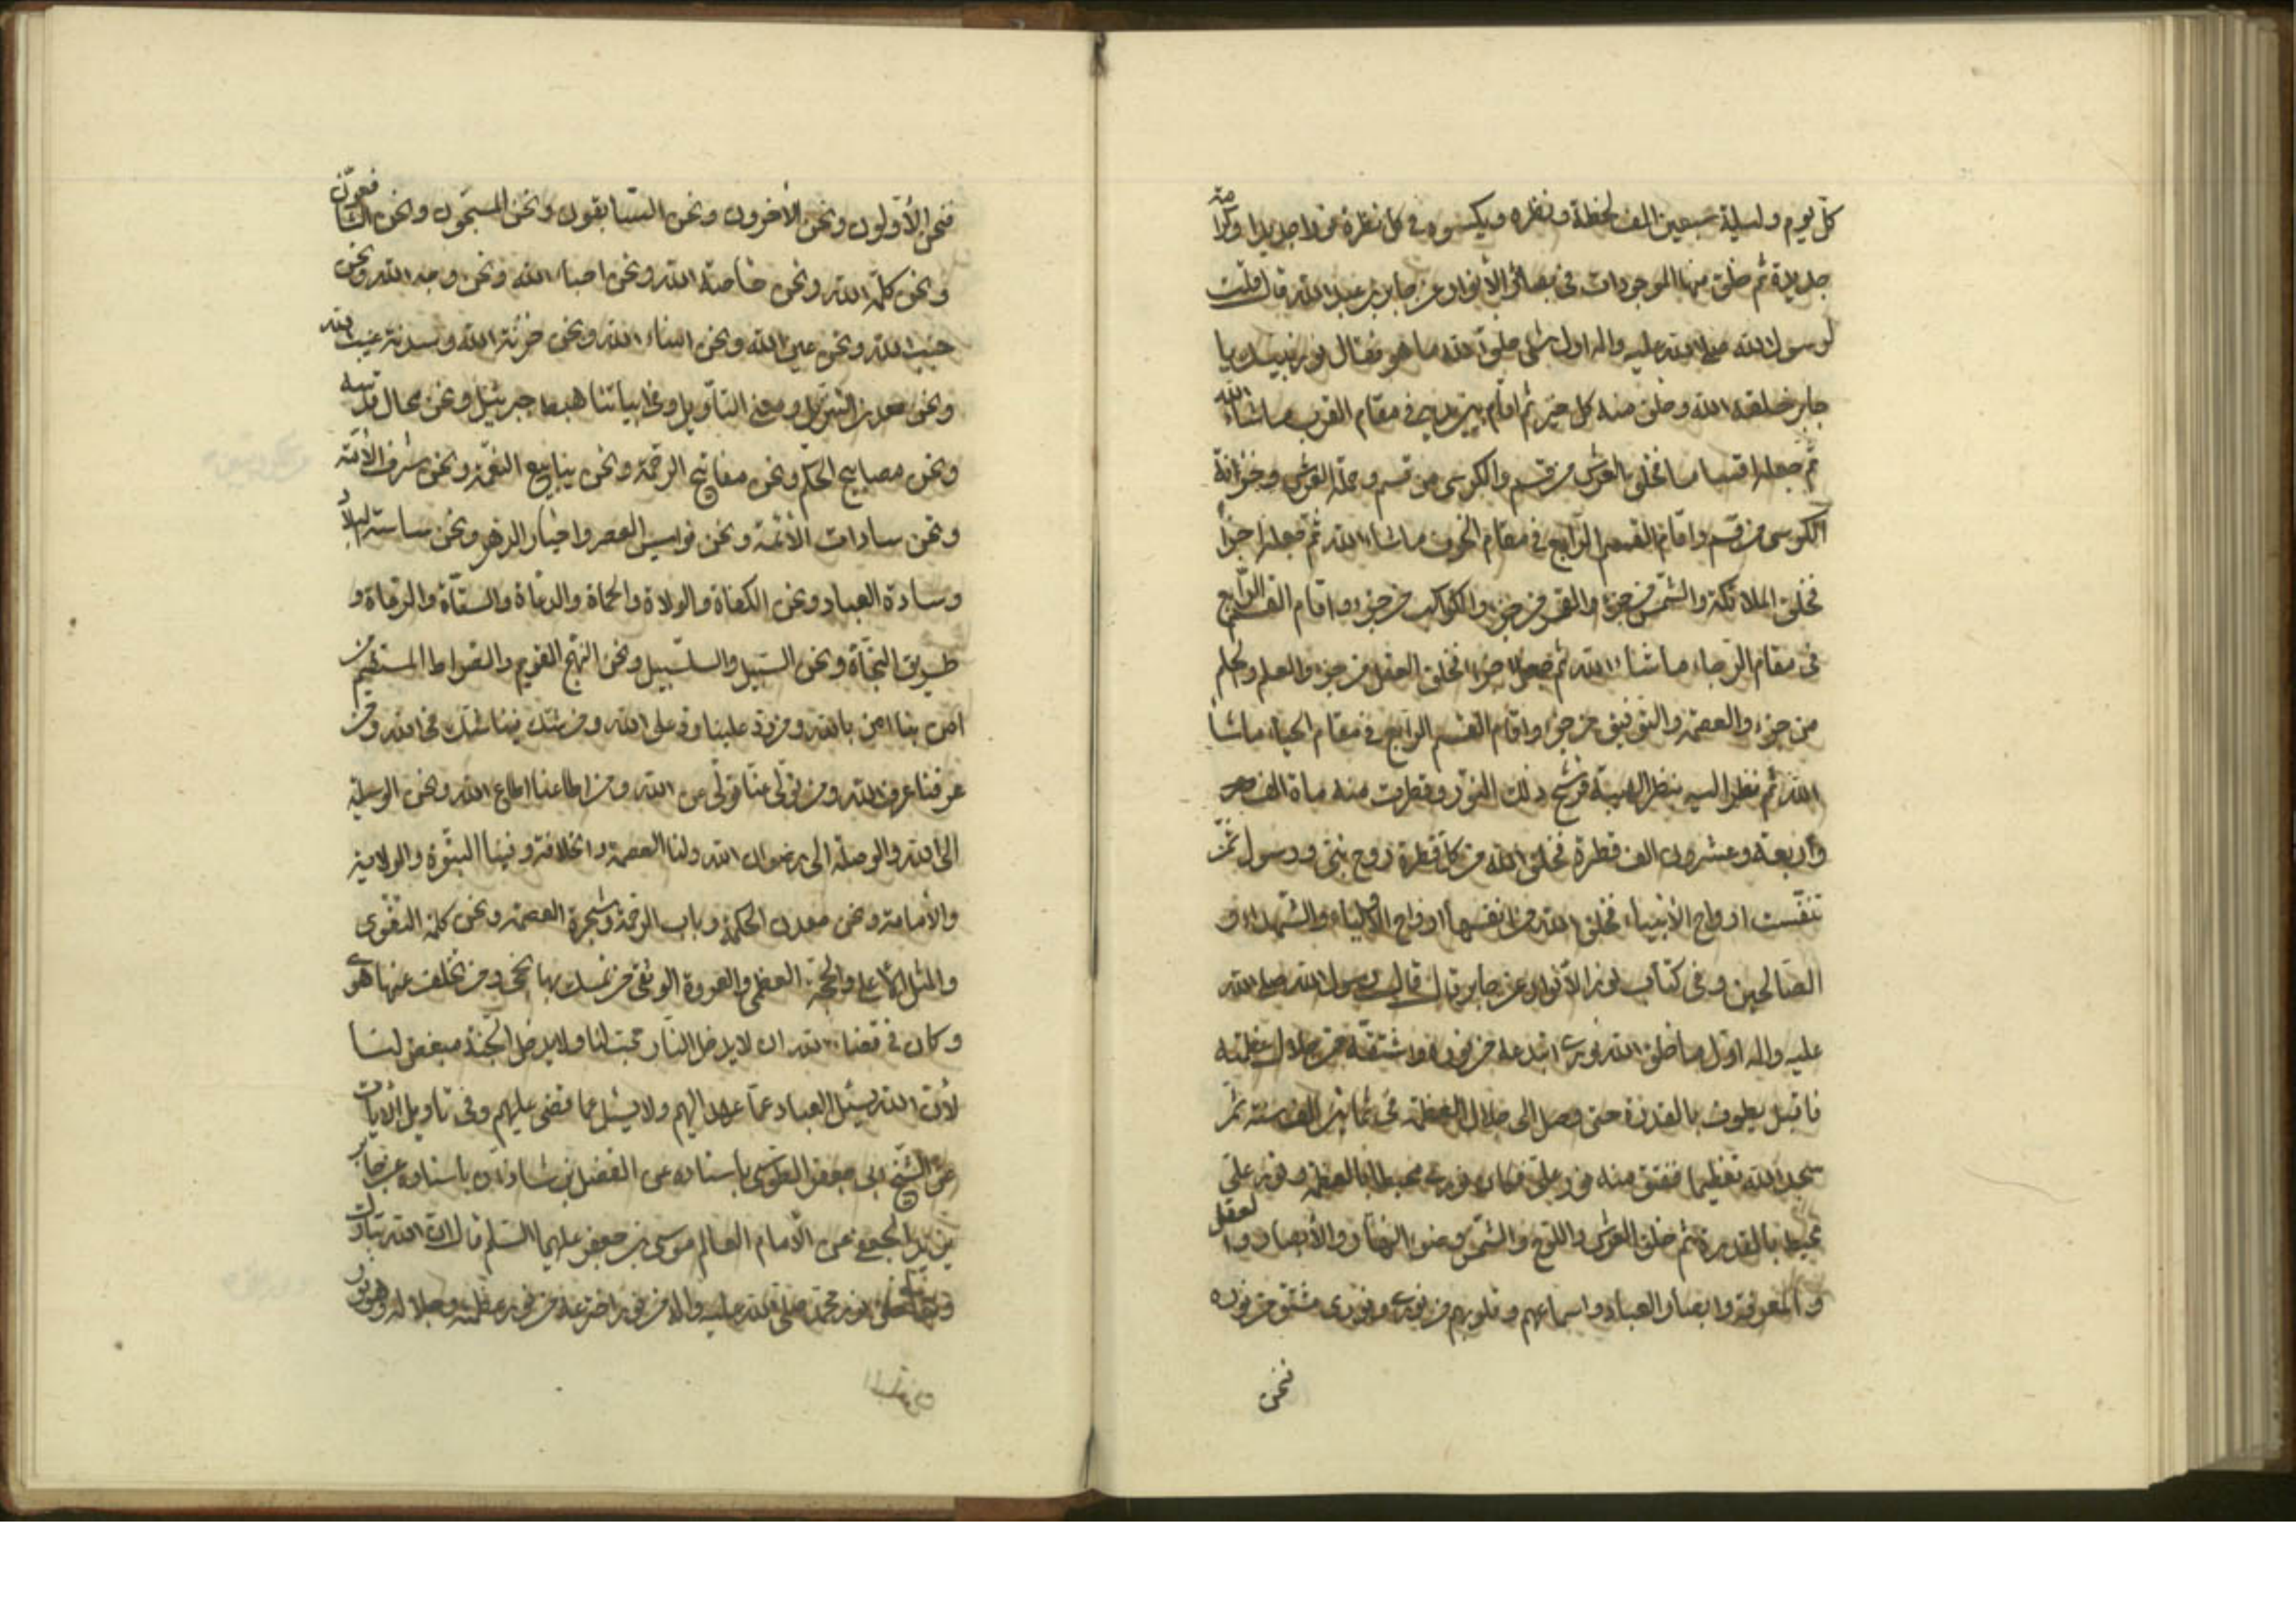 كل يوم وليلة سبعين الف لحظة ونظره ويكسوه في كل نظرة نورا جديدا وكرامة
جديدة ثم خلق منها الموجودات في بصائر الأنوار عن جابر بن عبد الله قال قلت
لرسول الله صلى الله عليه واله اول شئ خلق الله ما هو فقال نور نبيك يا
جابر خلقه الله وخلق منه كل خير ثم اقام بين يديه في مقام القرب ما شاء الله
ثم جعله اقساما فخلق العرش من قسم والكرسى من قسم وحملة العرش وخزانة
الكرسى من قسم واقام القسم الرابع في مقام الخوف ما شاء الله ثم جعله اجزاء
فخلق الملائكة والشمس من جزء والقمر من جزء والكواكب من جزء واقام القسم الرابع
فى مقام الرجاء ما شاء الله ثم جعله اجزاء فخلق العقل من جزء والعلم والحلم
من جزء والعصمة والتوفيق من جزء واقام القسم الرابع في مقام الحياء ماشاء
الله ثم نظر اليه بنظر الهيبة فرشح ذلك النور وقطرت منه ماة الف
وأربعة وعشرون الف قطرة فخلق الله من كل قطرة روح نبي ورسول ثم
تنفست ارواح الأنبياء فخلق الله من انفسها ارواح الاولياء والشهداء و
الصالحين وفي كتاب نور الأنوار عن جابر قال قال رسول الله صلى الله
عليه واله اول ما خلق الله نوري ابتدعه من نوره واشتقه من جلال عظمته
فاقبل يطوف بالقدرة حتى وصل الى جلال العظمة في ثمانين الف سنة ثم
سجد لله تعظيما ففتق منه نور علي فكان نوري محيطا بالعظمة ونور علي
محيط بالقدرة ثم خلق العرش واللوح والشمس وضوء النهار والأبصار والعقل
والمعرفة وابصار العباد واسماعهم وقلوبهم من نوري ونوري مشتق من نوره
فنحن
فنحن الأولون ونحن الأخرون ونحن السابقون ونحن المسبحون ونحن الشافعون
ونحن كلمة الله ونحن خاصة الله ونحن احباء الله ونحن وجه الله ونحن
جنب الله ونحن عين الله ونحن امناء الله ونحن خزنة الله وسدنة غيب الله
ونحن معدن التنزيل ومعنى التأويل وفي ابياتنا هبط جبرئيل ونحن محال قدسه
ونحن مصابيح الحكم ونحن مفاتيح الرحمة ونحن ينابيع النعمة ونحن شرف الأمة
ونحن سادات الأئمة ونحن نواميس العصر واحبار الدهر ونحن ساسة البلاد
وسادة العباد ونحن الكفاة والولاة والحماة والدعاة والسقاة والرعاة و
طريق النجاة ونحن السبيل والسلسبيل ونحن النهج القويم والصراط المستقيم من
امن بنا امن بالله ومن رد علينا رد على الله ومن شك فينا شك في الله ومن
عرفنا عرف الله ومن تولى عنا تولى عن الله ومن اطاعنا اطاع الله ونحن الوسيلة
الى الله والوصلة الى رضوان الله ولنا العصمة والخلافة وفينا النبوة والولاية
والأمامة ونحن معدن الحكمة وباب الرحمة وشجرة العصمة ونحن كلمة التقوى
والمثل الأعلى والحجة العظمى والعروة الوثقى من تمسك بها نجى ومن تخلف عنها هوى
وكان في قضاء الله ان لا يدخل النار محب لنا ولا يدخل الجنة مبغض لنا
لأن الله يسئل العباد عما عهد اليهم ولا يسئل عما قضى عليهم وفي تأويل الأيات
عن الشيخ ابي جعفر الطوسي باسناده عن الفضل بن شاذان باسناده عن جابر
بن يزيد الجعفي عن الأمام العالم موسى بن جعفر عليهما السلام قال ان الله تبارك
وتعالى خلق نور محمد صلى الله عليه واله من نور اخترعه من نور عظمته وجلاله وهو نور